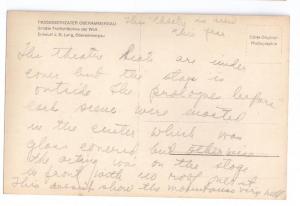 PASSIONSTHEATER OBERAMMERGAU
Größte Freilichtbühne der Welt
Entwurf v. G. Lang, Oberammergau
Echte Original-
Photographie
This is new
this year
The Theatre Seats are under
cover but the stage is
outside The prologue before
each scene were
in the center which was
glass covered but otherwise
the acting was on the stage
in front with no roof over it
This doesn't show the mountains very well